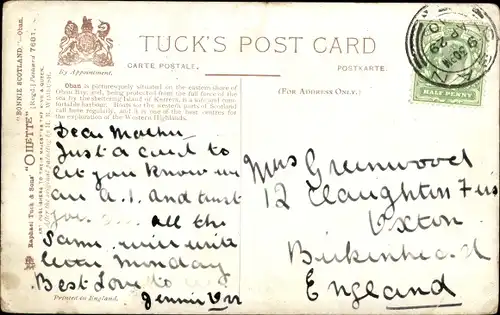 TUCK'S POST CARD
CARTE POSTALE.
POSTKARTE.
By Appointment.
(FOR ADDRESS ONLY.)
"BONNIE SCOTLAND," Oban.
"OILETTE" [Regd.] Postcard 7681.
Raphael Tuck & Sons'
ART PUBLISHERS TO THEIR MAJESTIES THE KING & QUEEN.
After the original painting by H. B. Wimbush.
Oban is picturesquely situated on the eastern shore of
Oban Bay, and, being protected from the full force of the
sea by the sheltering Island of Kerrera, is a safe and com-
fortable harbour. Boats to the western ports of Scotland
call here regularly, and it is one of the best centres for
the exploration of the Western Highlands.
HALF PENNY
Dear Mother
Just a card to
let you know we
are A.1. and trust
you are all the
same. will write
letter Monday
Best Love to
Jennie
Mrs Greenwood
12 Claughton
Oxton
Birkenhead
England
Printed in England.